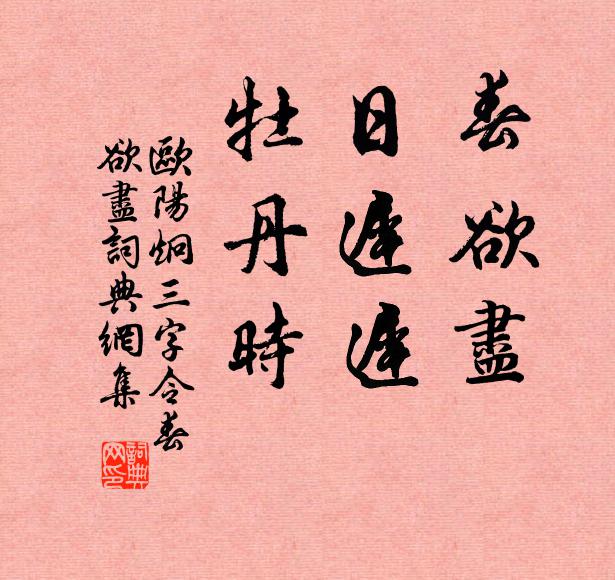 春欲盡
日遲遲
牡丹時
歐陽炯三字令春
欲盡詞典網集
詞典网印